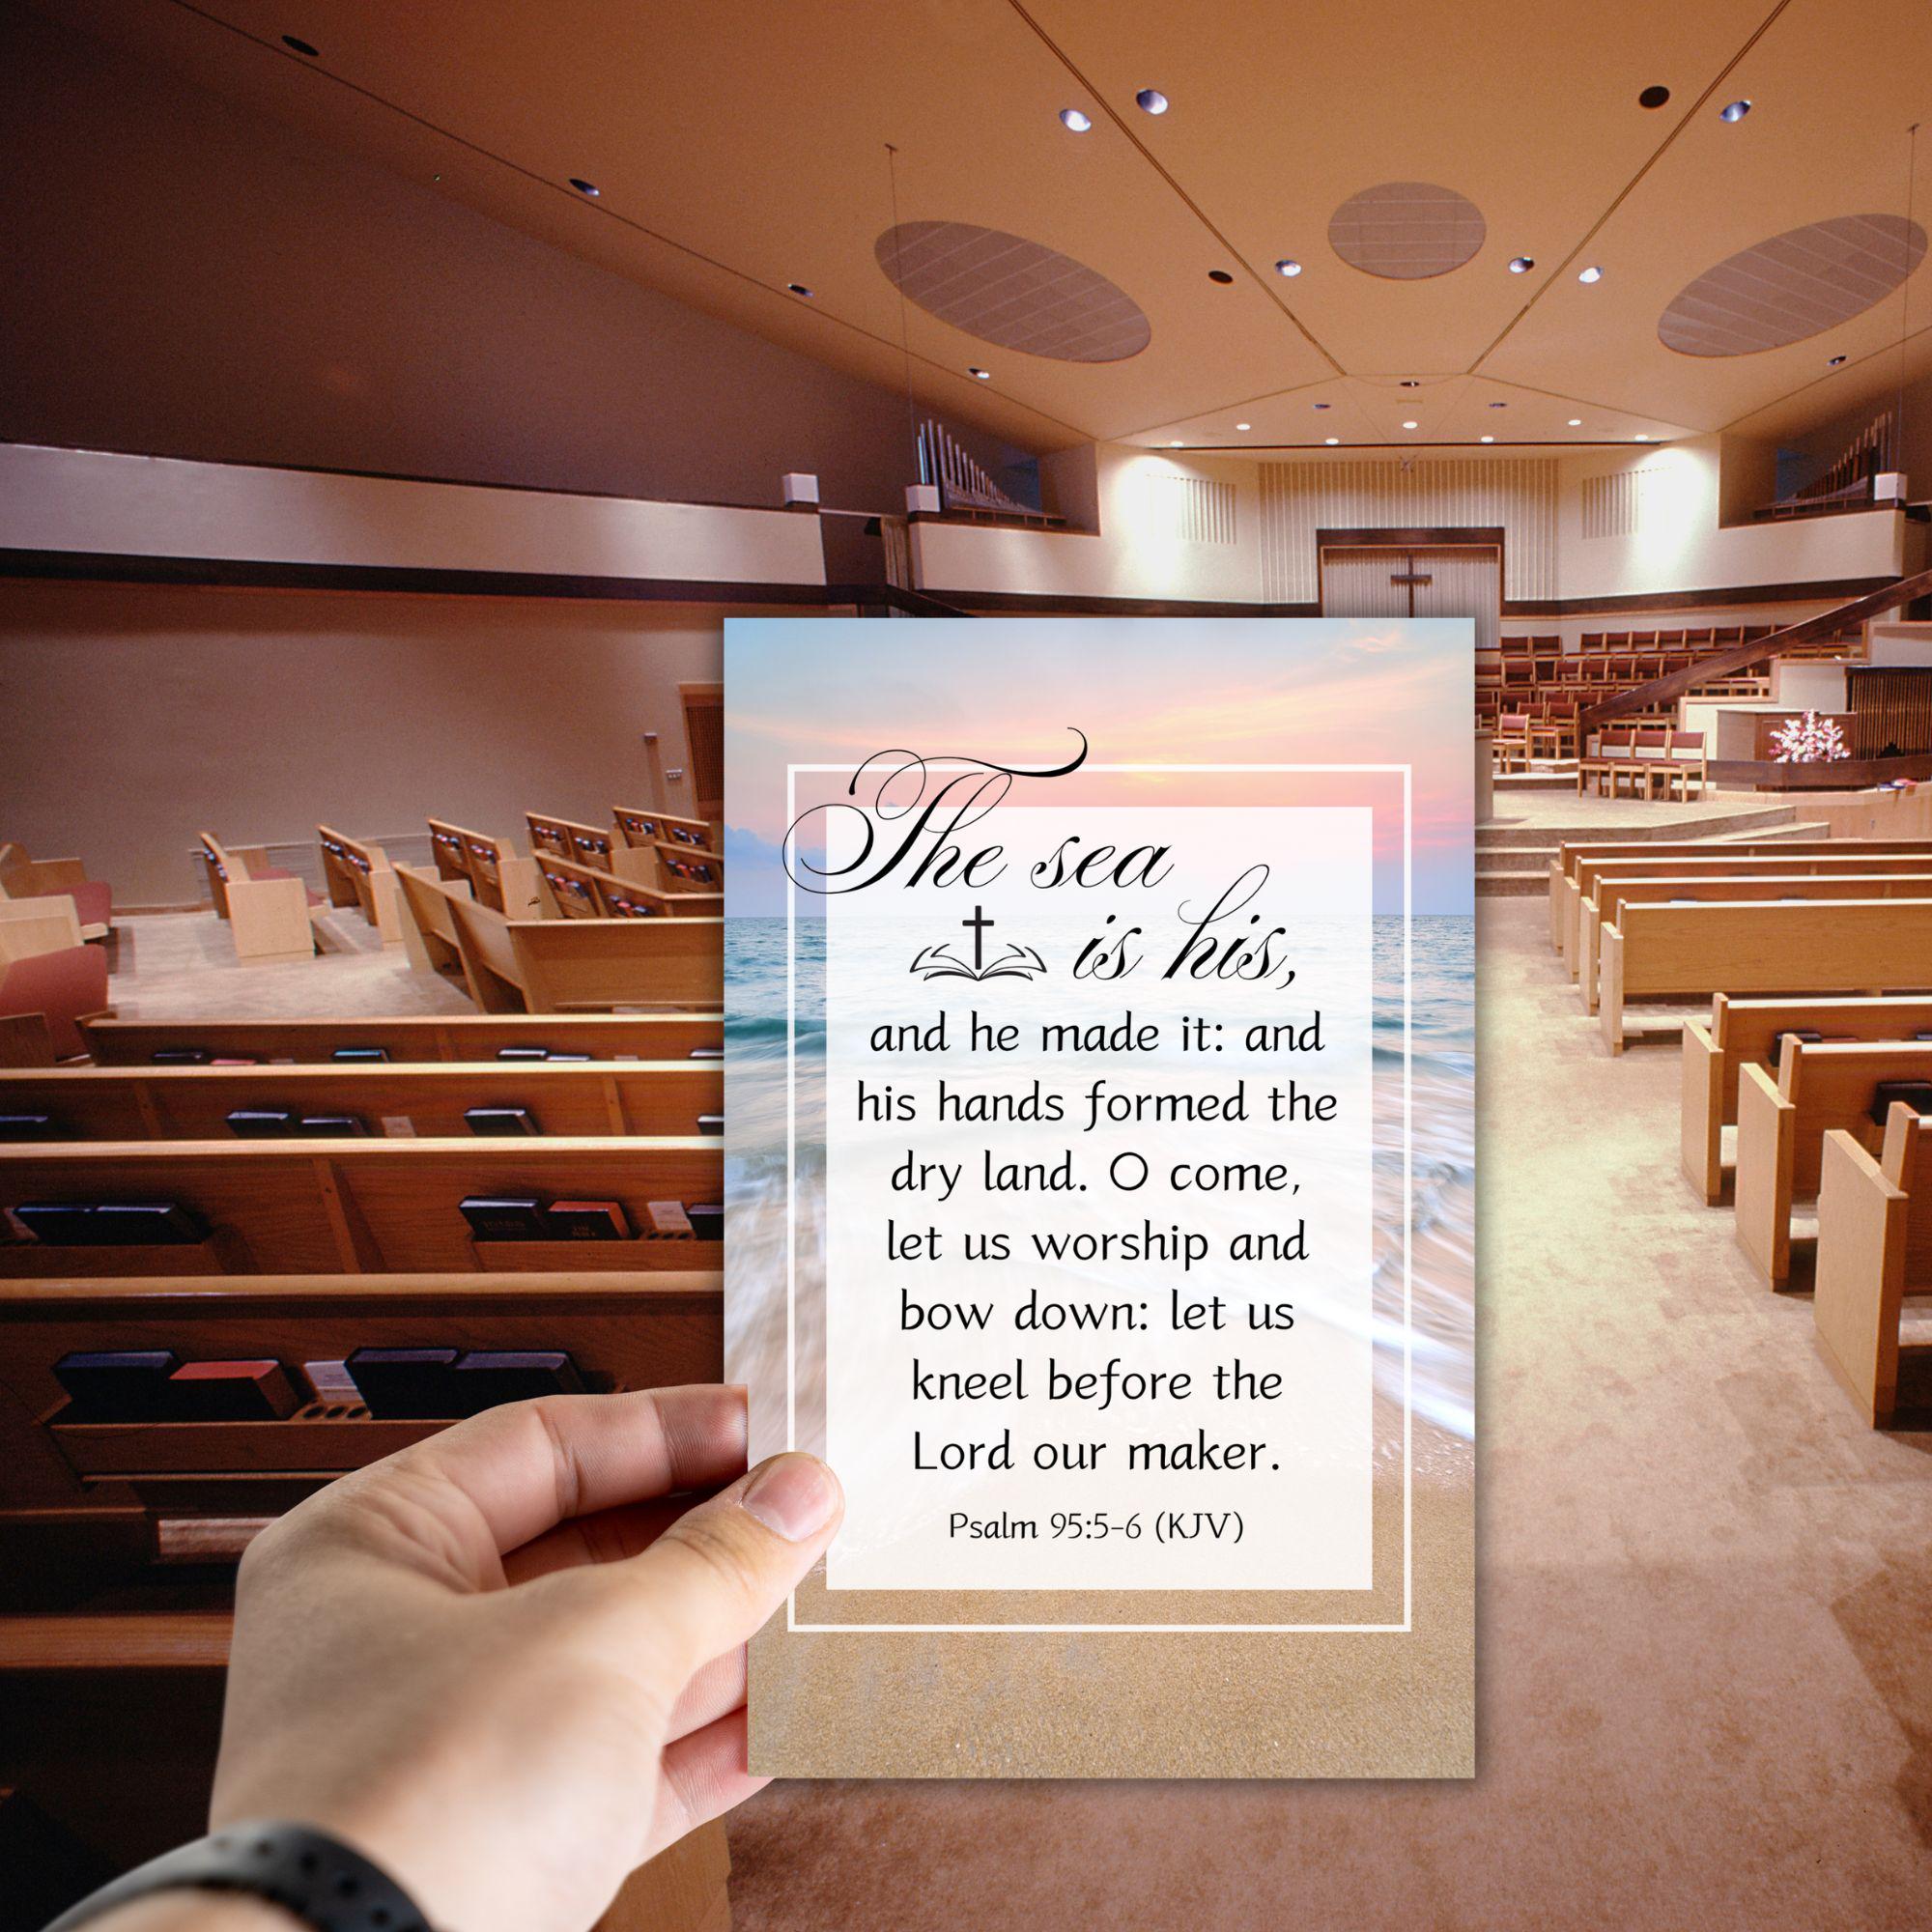 The sea
is his,
and he made it: and
his hands formed the
dry land. O come,
let us worship and
bow down: let us
kneel before the
Lord our maker.
Psalm 95:5-6 (KJV)